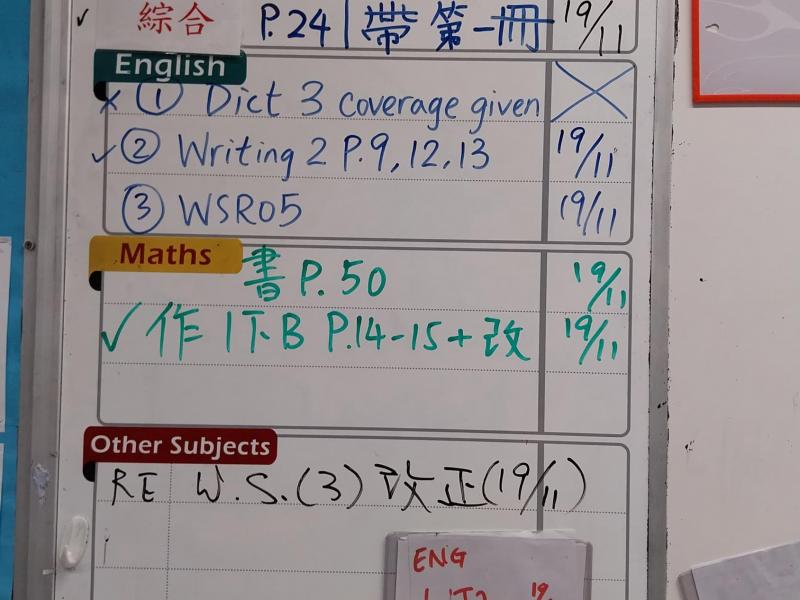 ✓ 綜合 P.24 | 帶第一冊 19/11
English
× ① Dict 3 coverage given
✓ ② Writing 2 P.9, 12, 13 19/11
③ WSR05 19/11
Maths
書 P. 50 19/11
✓ 作 1下B P.14-15 + 改 19/11
Other Subjects
RE W.S.(3) 改正(19/11)
ENG
19